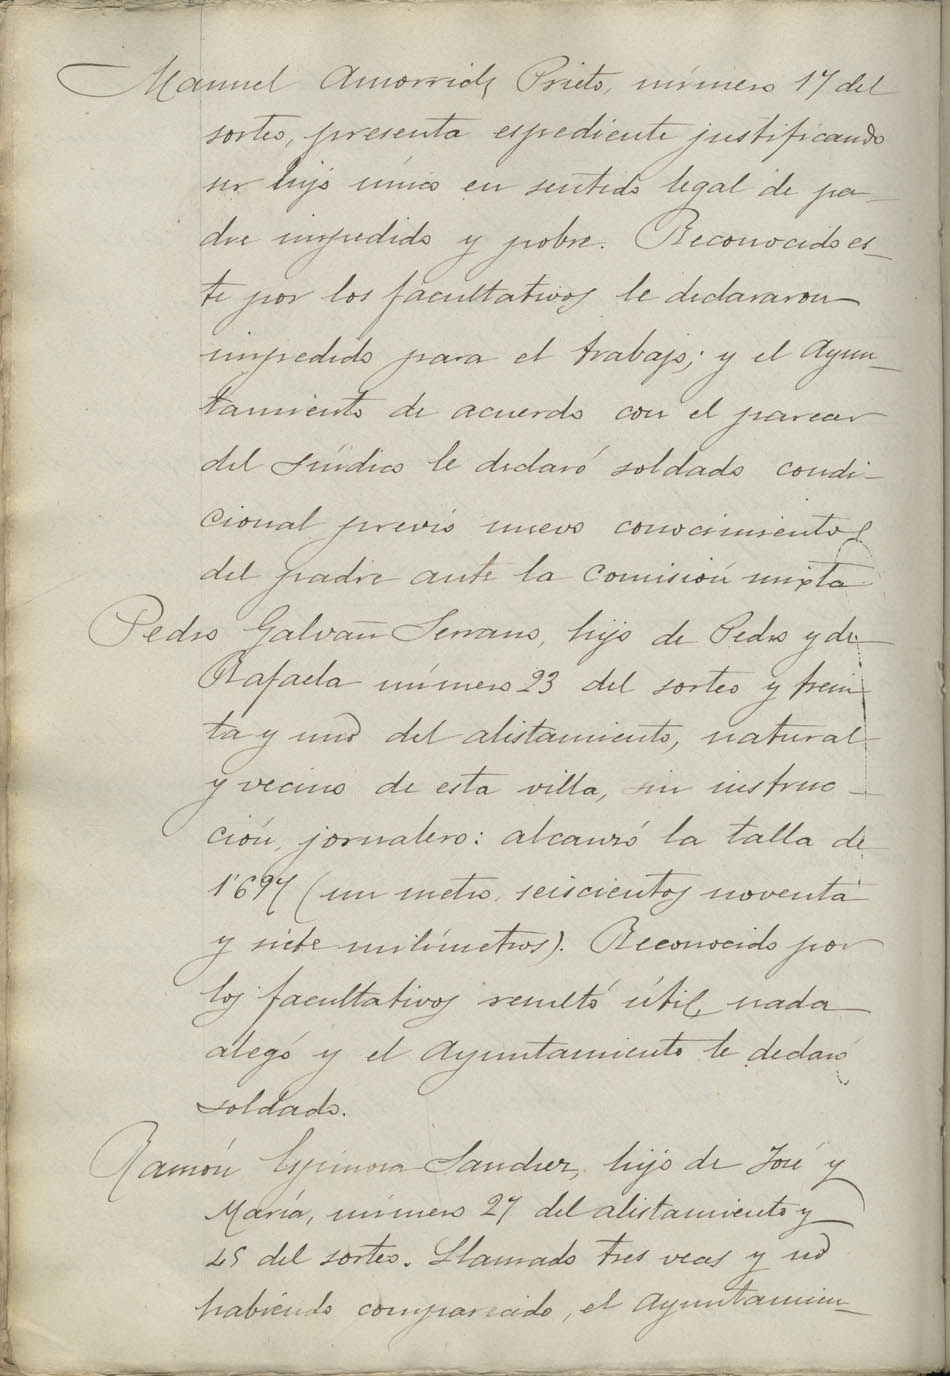 Manuel Amorrich Prieto, número 17 del
sorteo, presenta espediente justificando
ser hijo único en sentido legal de pa-
dre impedido y pobre. Reconocido es-
te por los facultativos le declararon
impedido para el trabajo; y el Ayun-
tamiento de acuerdo con el parecer
del Síndico le declaró soldado condi-
cional previo nuevo conocimiento
del padre ante la Comisión mixta
Pedro Galvañ Serrano, hijo de Pedro y de
Rafaela número 23 del sorteo y trein
ta y uno del alistamiento, natural
y vecino de esta villa, sin instruc-
ción, jornalero: alcanzó la talla de
1'697 (un metro, seiscientos noventa
y siete milímetros). Reconocido por
los facultativos resultó útil, nada
alegó y el Ayuntamiento le declaró
soldado.
Ramón Espinosa Sanchez, hijo de José y
María, número 27 del alistamiento y
45 del sorteo. Llamado tres veces y no
habiendo comparecido, el Ayuntamien-